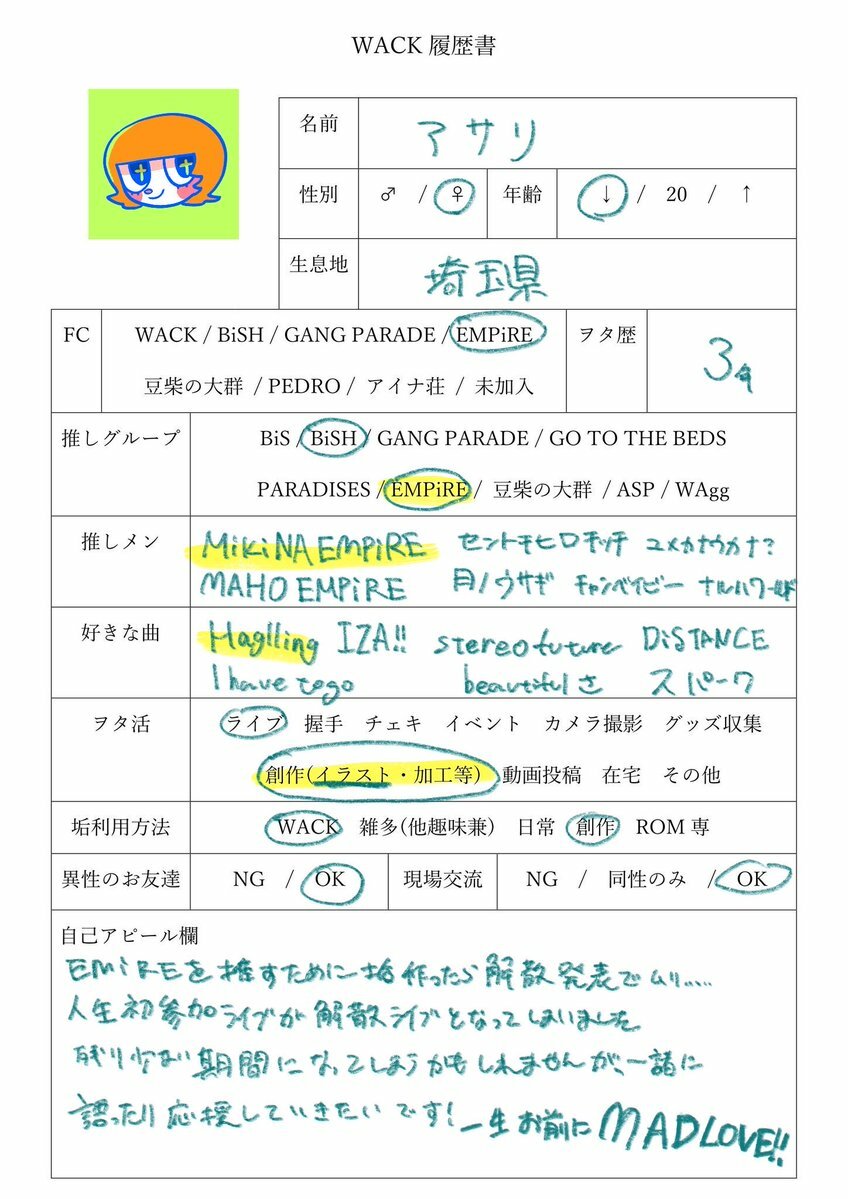 WACK 履歴書
名前 アサリ
性別 ♂ / ♀ 年齢 ↓ / 20 / ↑
生息地 埼玉県
FC WACK / BiSH / GANG PARADE / EMPiRE ヲタ歴 3年
豆柴の大群 / PEDRO / アイナ荘 / 未加入
推しグループ BiS / BiSH / GANG PARADE / GO TO THE BEDS
PARADISES / EMPiRE / 豆柴の大群 / ASP / WAgg
推しメン MiKiNA EMPiRE セントチヒロチッチ ユメカナウカナ?
MAHO EMPiRE 月ノウサギ チャンベイビー ナルハワールド
好きな曲 Haglling IZA!! stereo future DiSTANCE
I have to go beautifulさ スパーク
ヲタ活 ライブ 握手 チェキ イベント カメラ撮影 グッズ収集
創作(イラスト・加工等) 動画投稿 在宅 その他
垢利用方法 WACK 雑多(他趣味兼) 日常 創作 ROM専
異性のお友達 NG / OK 現場交流 NG / 同性のみ / OK
自己アピール欄
EMiREを推すために垢作ったら解散発表でムリ.....
人生初参加ライブが解散ライブとなってしまいました
残り少ない期間になってしまうかもしれませんが、一諸に
語ったり応援していきたいです! 一生お前に MADLOVE!!